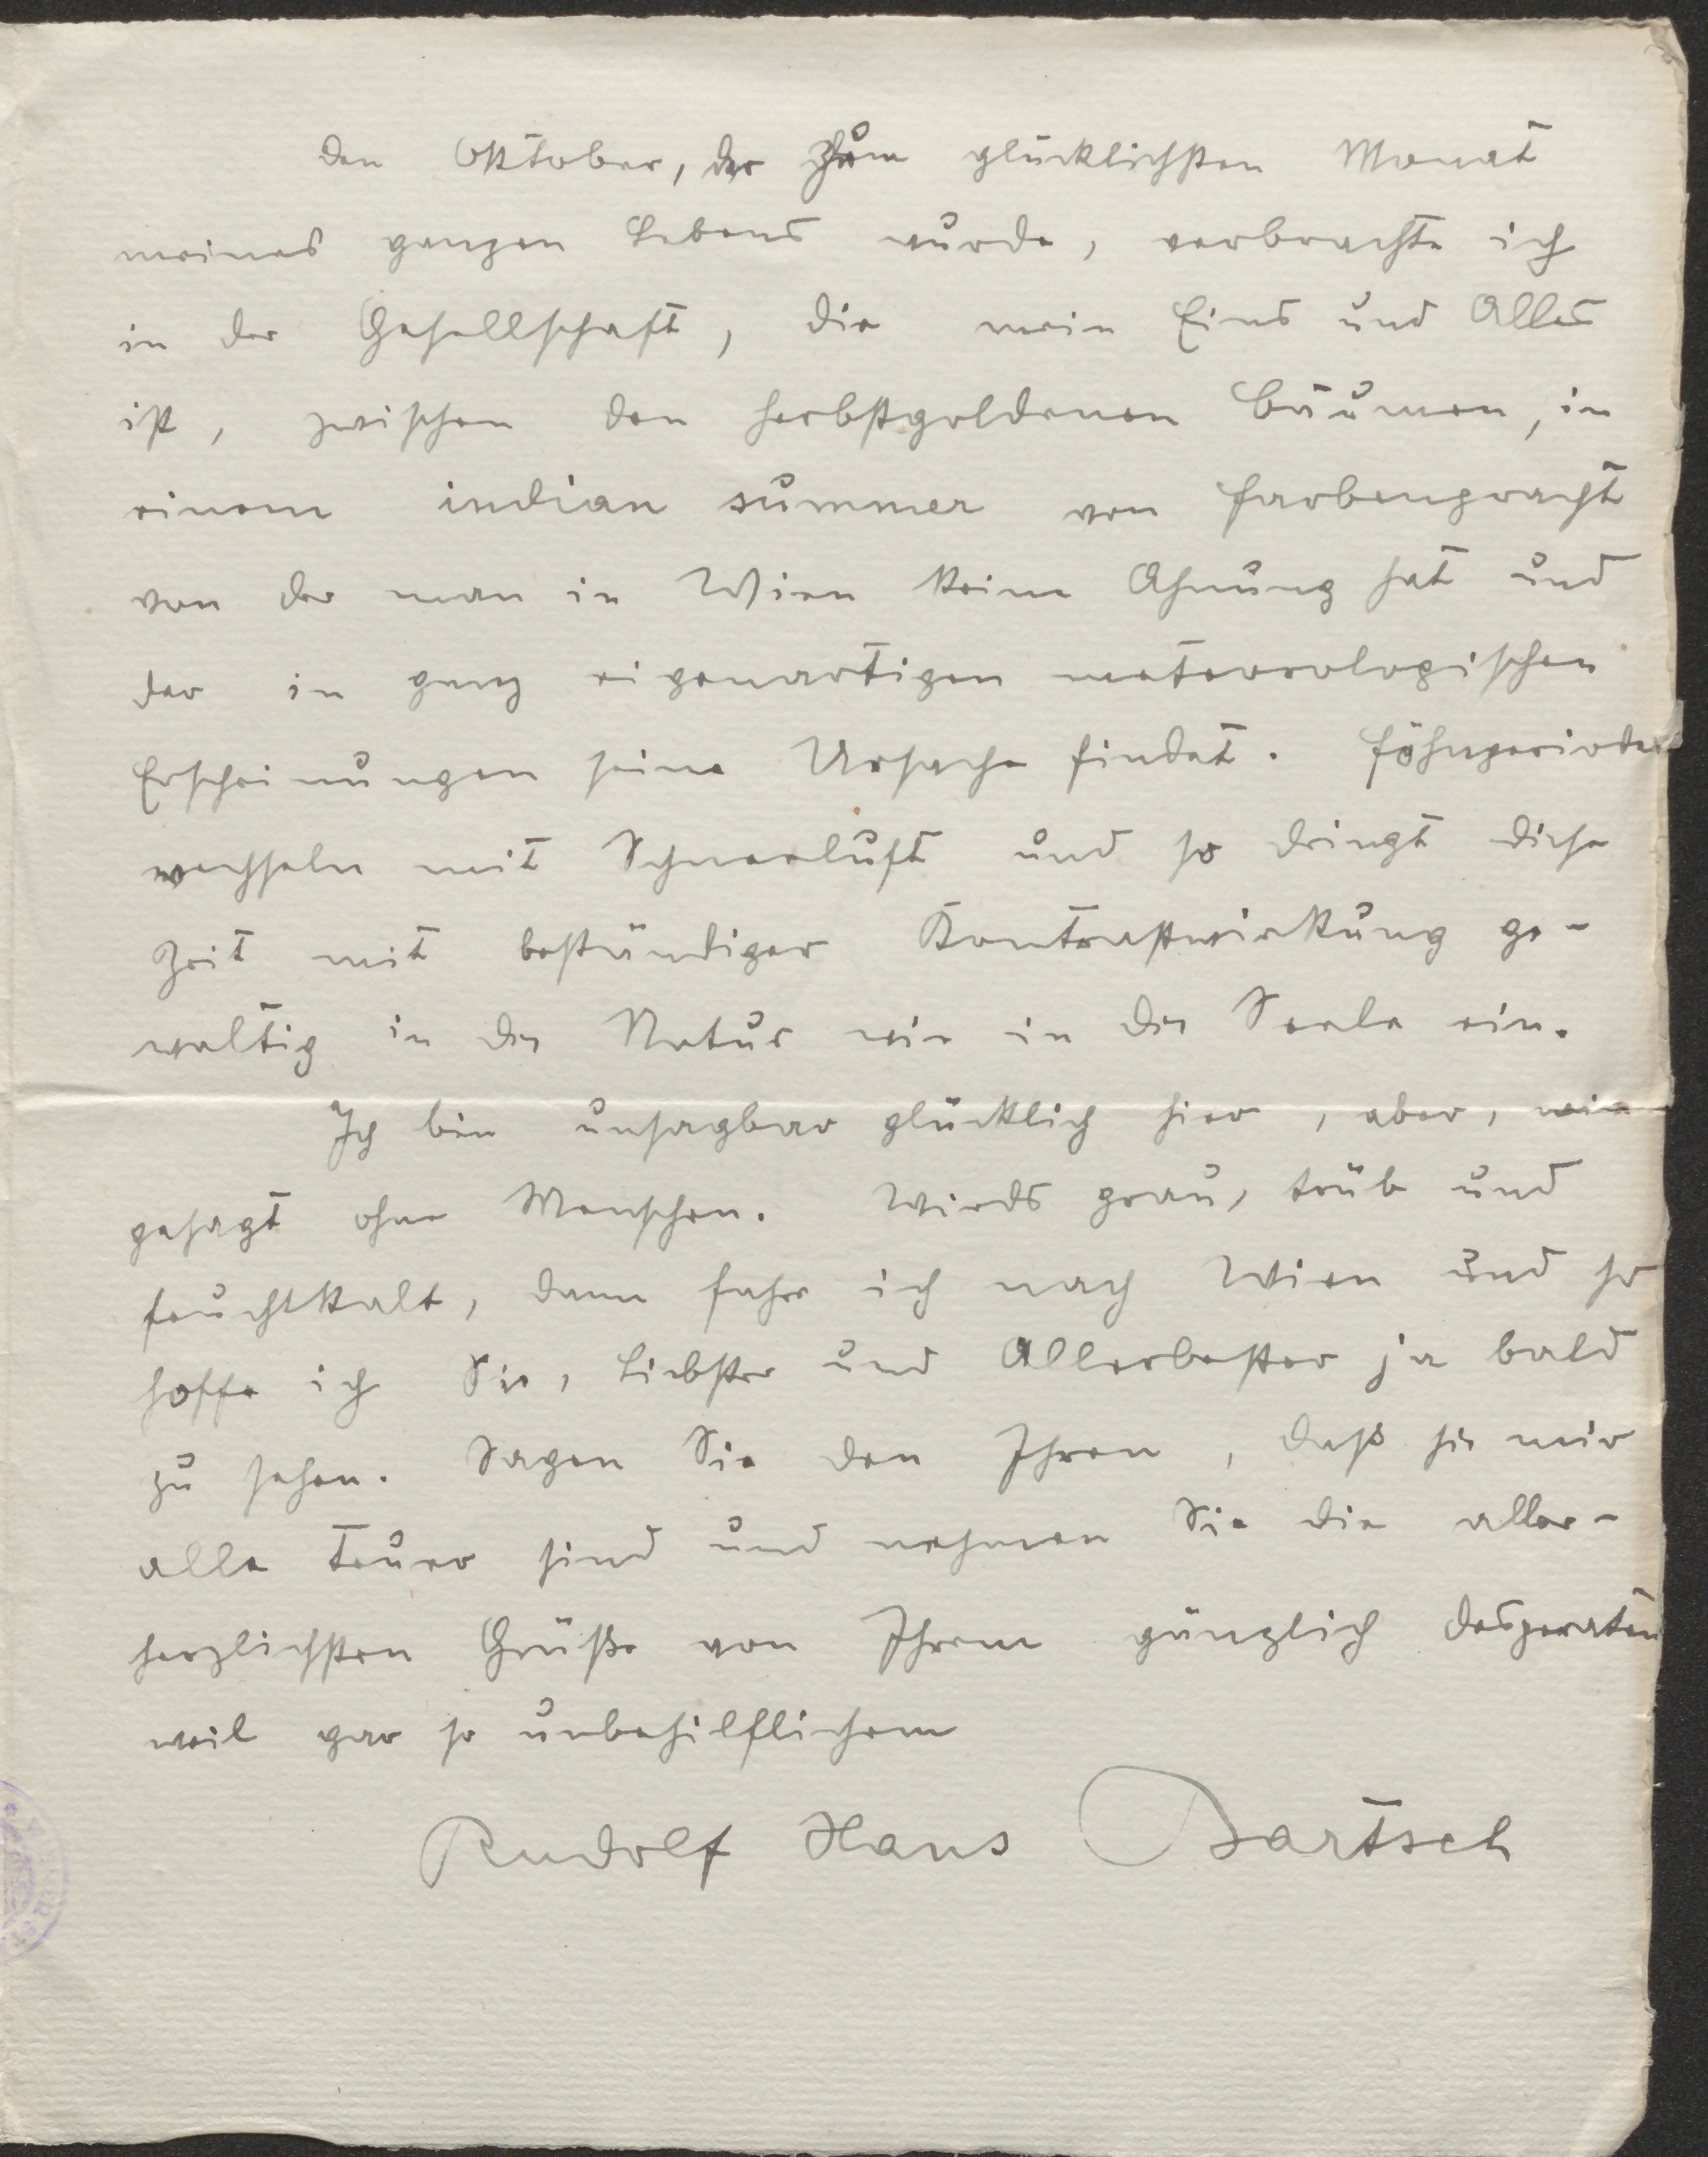 Den Oktober, der zum glücklichsten Monat
meines ganzen Lebens wurde, verbrachte ich
in der Gesellschaft, die mein Eins und Alles
ist, zwischen den herbstgoldenen Bäumen, in
einem indian summer von Farbenpracht
von der man in Wien keine Ahnung hat und
der in ganz eigenartigen meteorologischen
Erscheinungen seine Ursache findet. Föhnperioden
wechseln mit Schneeluft und so dringt diese
Zeit mit beständiger Kontrastwirkung ge-
waltig in der Natur wie in der Seele ein.
Ich bin unsagbar glücklich hier, aber, wie
gesagt ohne Menschen. Wirds grau, trüb und
feuchtkalt, dann fahre ich nach Wien und so
hoffe ich Sie, Liebster und Allerbester ja bald
zu sehen. Sagen Sie den Ihren, daß sie mir
alle teuer sind und nehmen Sie die aller-
herzlichsten Grüße von Ihrem gänzlich desperaten
weil gar so unbehilflichem
Rudolf Hans Bartsch